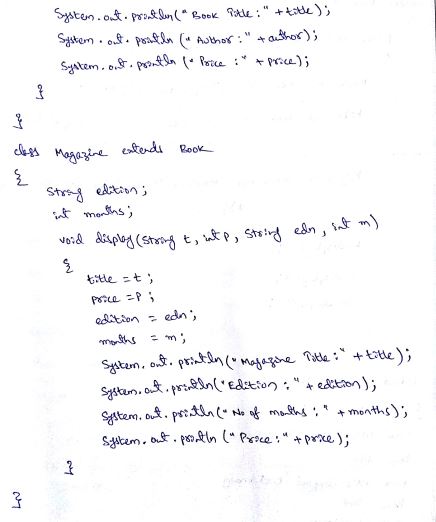 System.out.println("Book Title:" +title);
System.out.println ("Author:" +author);
System.out.println ("Price :" + price);
}
}
class Magazine extends Book
{
String edition;
int months;
void display(String t, int p, String edn, int m)
{
title =t;
price =p;
edition = edn;
months = m;
System.out.println("Magazine Title:" +title);
System.out.println("Edition :" + edition);
System.out.println("No of months :" +months);
System.out.println ("Price:" +price);
}
}